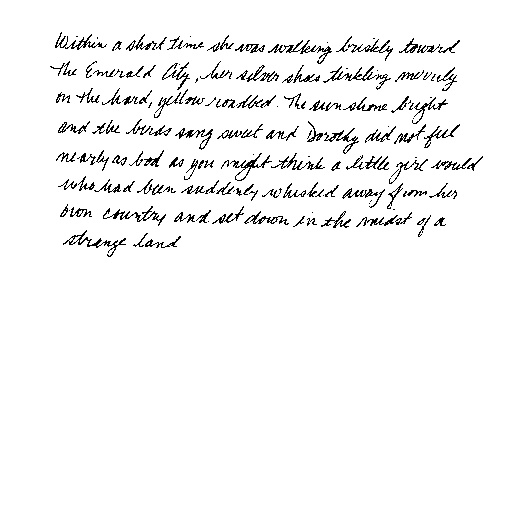 Within a short time she was walking briskly toward
the Emerald City, her silver shoes tinkling merrily
on the hard, yellow roadbed. The sun shone bright
and the birds sang sweet and Dorothy did not feel
nearly as bad as you might think a little girl would
who had been suddenly whisked away from her
own country and set down in the midst of a
strange land